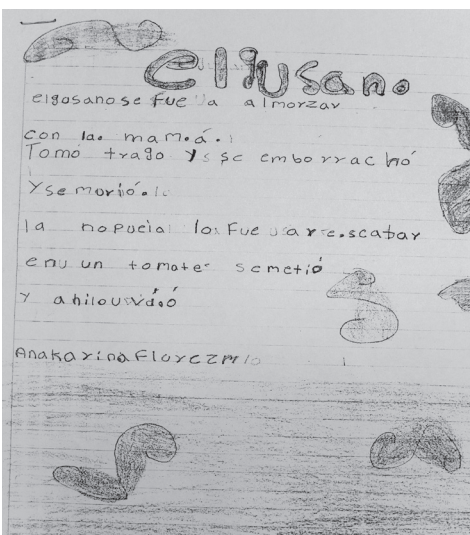 el gusano
elgosanose fue a almorzar
con la mamá.
Tomó trago Y se emborrachó
Y se murió.
la nopucia lo fue a rrescatar
en un tomate semetió
Y ahi lo
Anakarina Florez